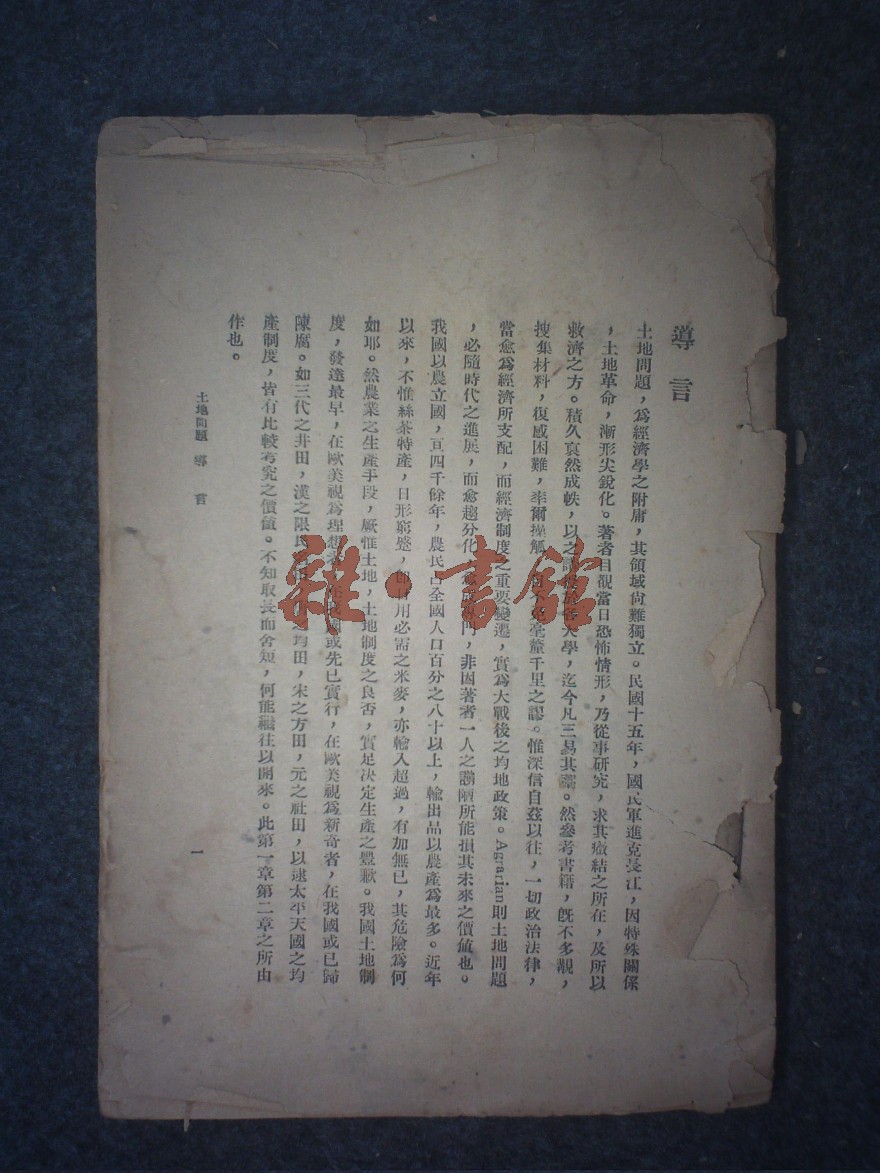 導言
土地問題，爲經濟學之附庸，其領域尚難獨立。民國十五年，國民軍進克長江，因特殊關係
，土地革命，漸形尖銳化。著者目覩當日恐怖情形，乃從事研究，求其癥結之所在，及所以
救濟之方。積久裒然成帙，以之講大學，迄今凡三易其藁。然參考書籍，旣不多覩，
搜集材料，復感困難，率爾操觚，毫釐千里之謬。惟深信自茲以往，一切政治法律，
當愈爲經濟所支配，而經濟制度之重要變遷，實爲大戰後之均地政策。Agrarian則土地問題
，必隨時代之進展，而愈趨分化，門，非因著者一人之譾陋所能損其未來之價值也。
我國以農立國，亘四千餘年，農民占全國人口百分之八十以上，輸出品以農產爲最多。近年
以來，不惟絲茶特產，日形窮蹙，卽日用必需之米麥，亦輸入超過，有加無已，其危險爲何
如耶。然農業之生產手段，厥惟土地，土地制度之良否，實足决定生產之豐歉。我國土地制
度，發達最早，在歐美視爲理想者，國或先已實行，在歐美視爲新奇者，在我國或已歸
陳腐。如三代之井田，漢之限民之均田，宋之方田，元之社田，以逮太平天國之均
產制度，皆有比較考究之價值。不知取長而舍短，何能繼往以開來。此第一章第二章之所由
作也。
土地問題 導言
一
雜·書館